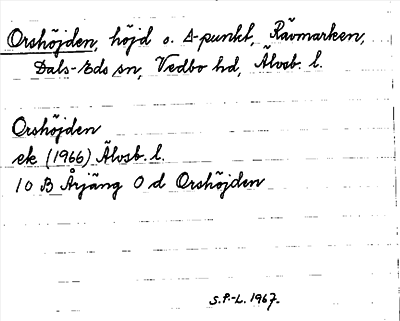 Orshöjden, höjd o. Δ-punkt, Rävmarken,
Dals-Eds sn, Vedbo hd, Älvsb. l.
Orshöjden
ek (1966) Älvsb. l.
10 B Årjäng 0 d Orshöjden
S.P.-L. 1967.